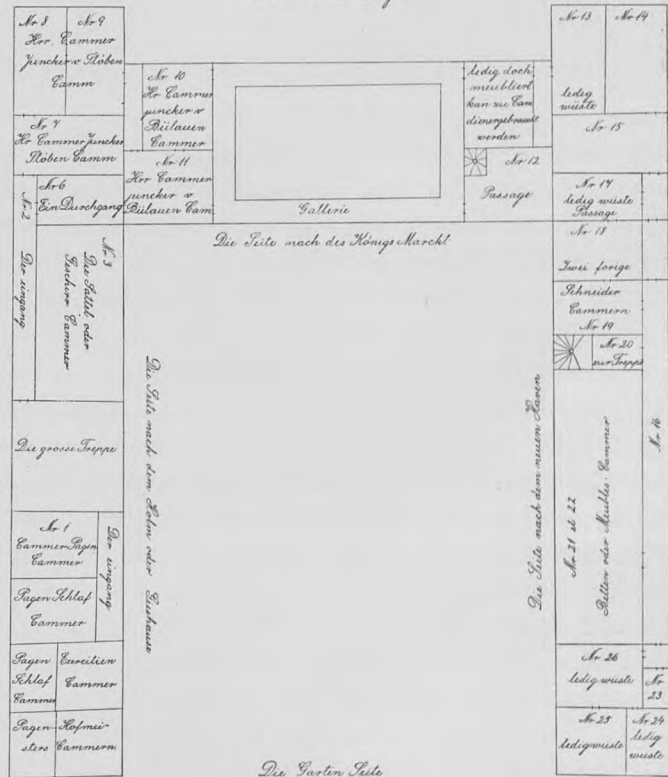 Nr 8 Nr 9
Hrr. Cammer
Juncker v Plöben
Camm
Nr 7
Hr Cammer Juncker
Plöben Camm
Nr 6
Ein Durchgang
Nr 2
Der eingang
Nr 3
Die Sattel oder
Geschirr Cammer
Die grosse Treppe
Nr 1
Cammer Pagen
Cammer
Der eingang
Pagen Schlaf
Cammer
Pagen
Schlaf
Cammer
Exercitien
Cammer
Pagen Hofmei-
sters Cammern
Nr 10
Hr Cammer
juncker v
Bülauen
Cammer
Nr 11
Hrr Cammer
juncker v
Bülauen Cam
Gallerie
ledig doch
meubliert
kan zu Cam
dienergebraucht
werden
Nr 12
Passage
Die Seite nach des Königs Marckt
Die Seite nach dem Holm oder Gieshause
Die Seite nach dem neuen Haven
Die Garten Seite
Nr 13
ledig
wüste
Nr 14
Nr 15
Nr 17
ledig wüste
Passage
Nr 18
Zwei forige
Schneider
Cammern
Nr 19
Nr 20
zur Treppe
Nr 16
Nr 21 et 22
Betten oder Meubles-Cammer
Nr 26
ledig wuste
Nr
23
Nr 25
ledig wuste
Nr 24
ledig
wuste